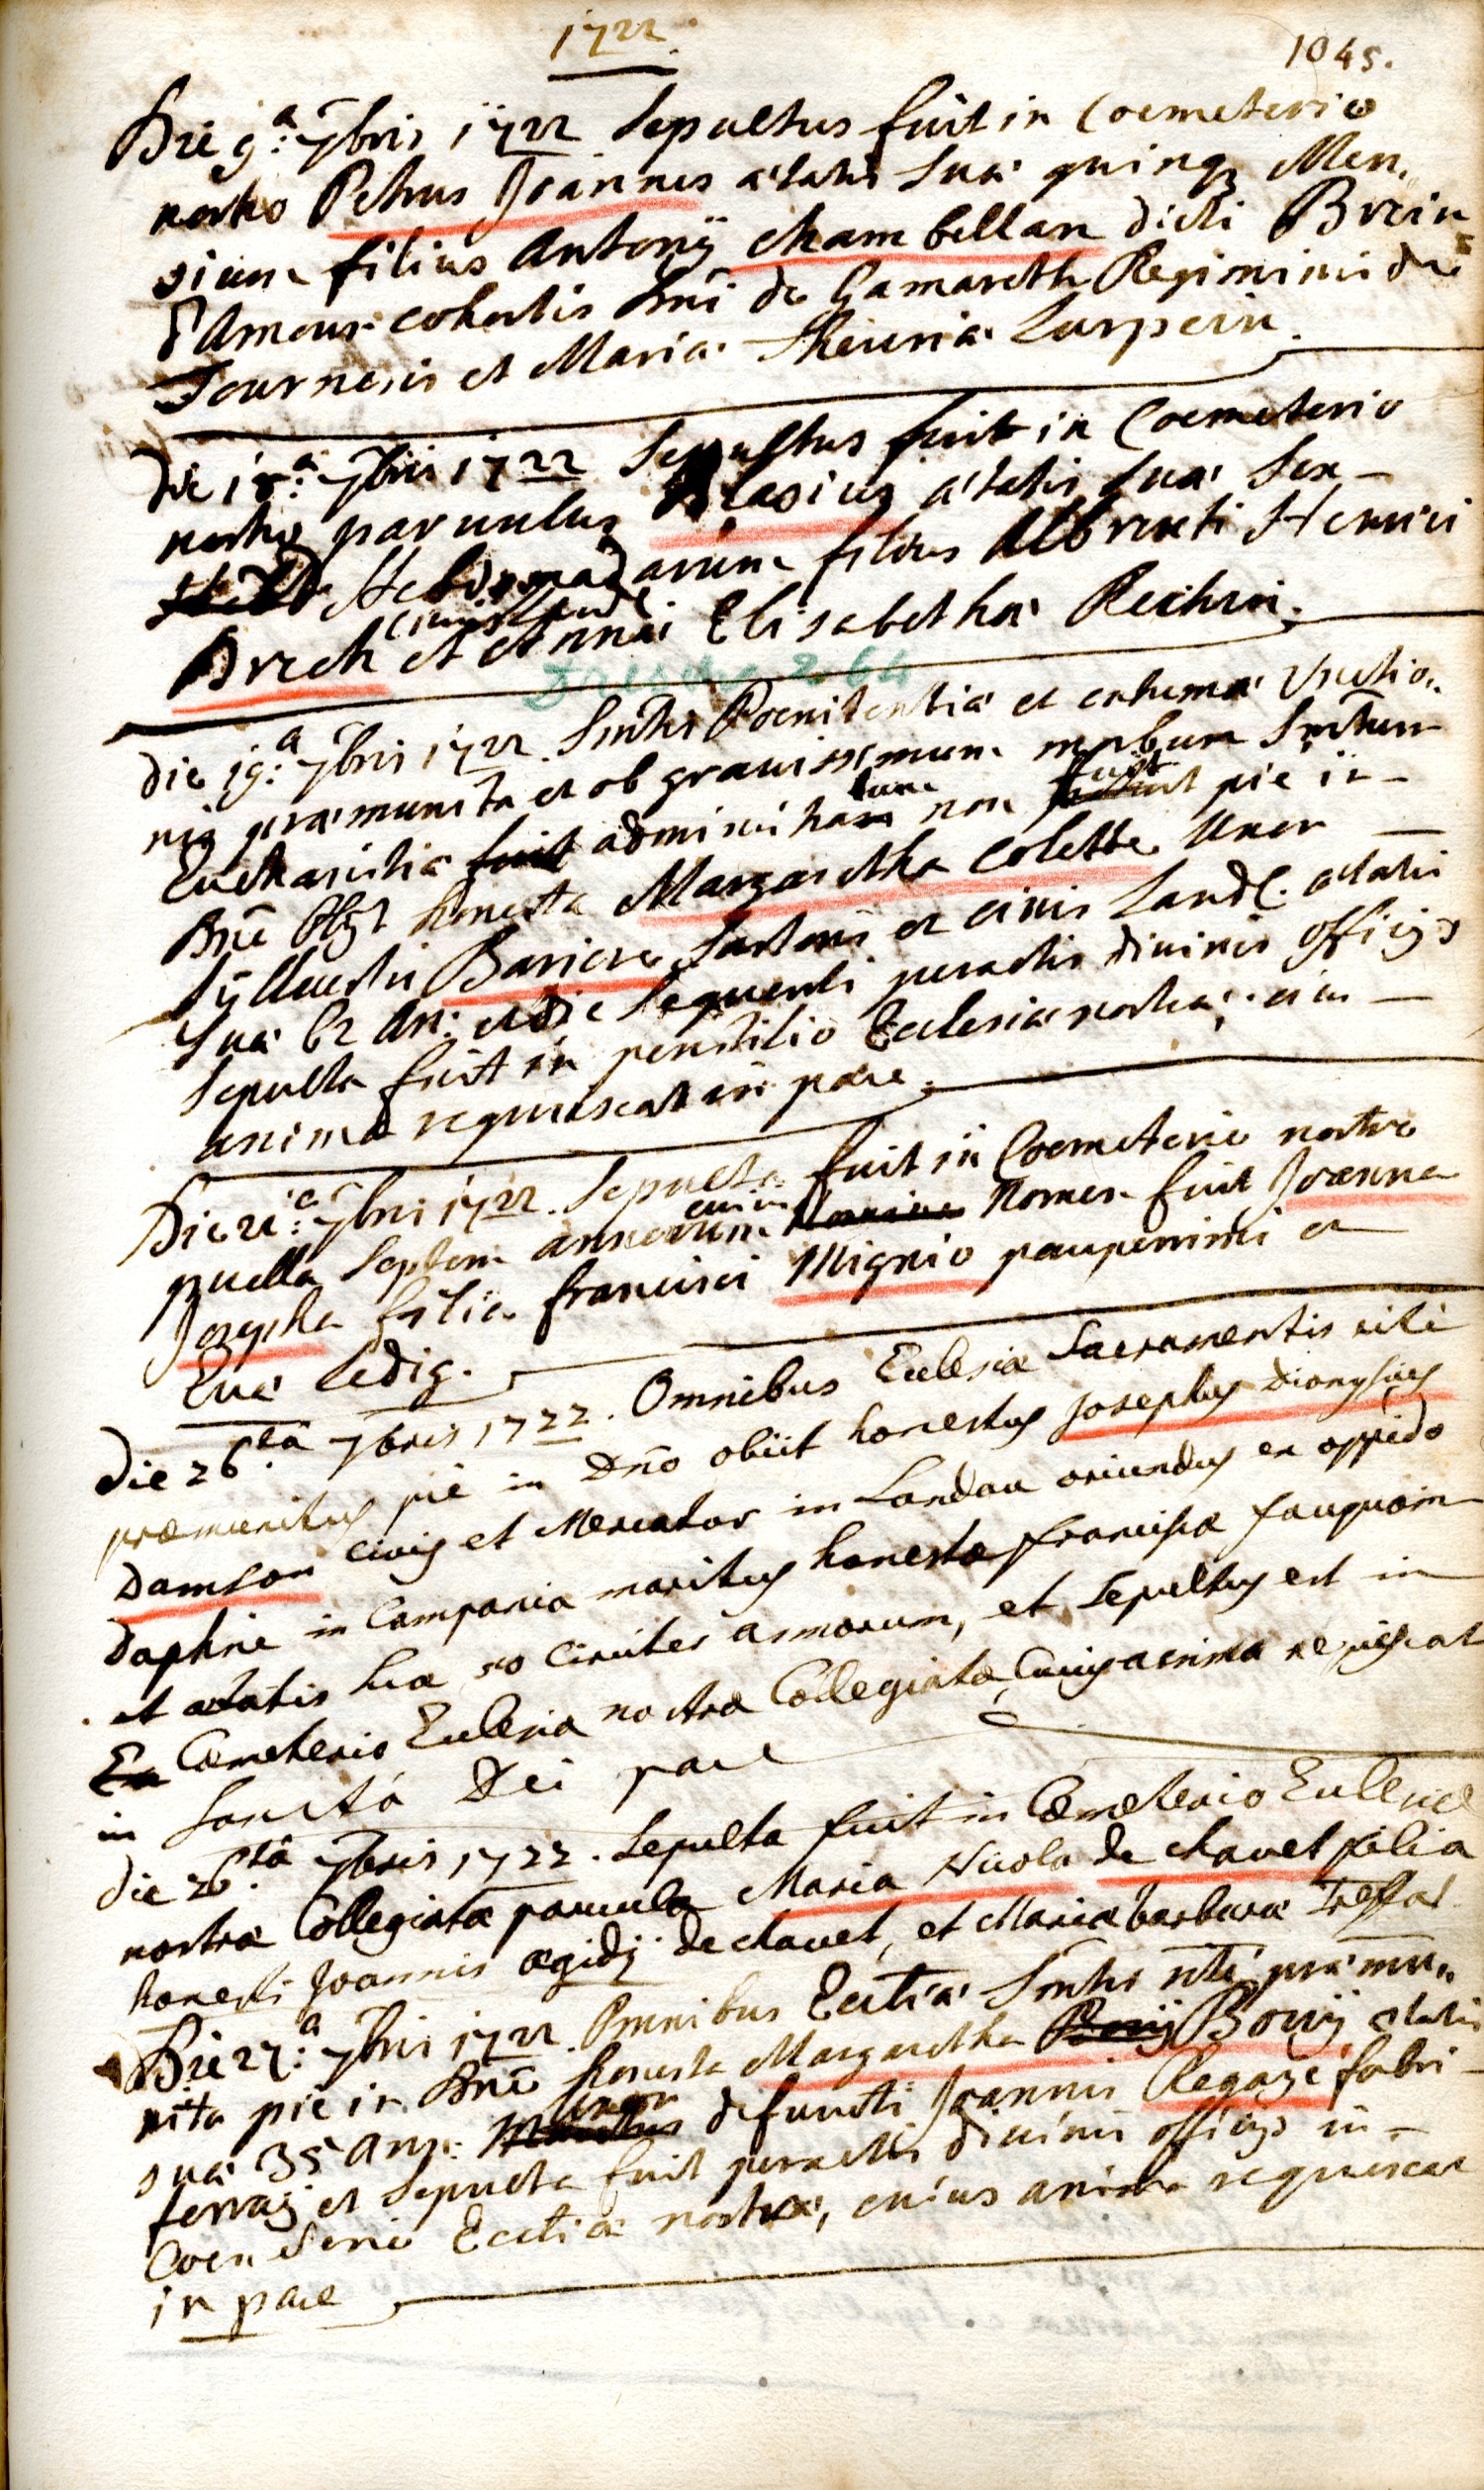 1722
1045.
Die 9:a 7bris 1722 Sepultus fuit in Coemeterio
nostro Petrus Joannes ætatis suæ quinq3 Men„
sium filius Antonÿ chambellan dicti Brein
d'Amour cohortis Dni de Gamareth Regiminis de
Tournesis et Maria
Die 18:a 7bris 1722 Sepultus fuit in Coemeterio
nostro parvulus Blasius ætatis suæ sex -
Hebdomadarum filius Albrecti Henrici
civis Land(
Brech et Annæ Elisabethæ Reichin.
264
die 19:a 7bris 1722. Smtis Poenitentiæ et extremæ Unctio„
nis præmunita et ob gravissimum morbum Smtum
Eucharistiæ fuit administratum non fuit pie in -
Dno obijt honesta Margaretha Colette Uxor
Sÿlvestri Bariere Sartoris et civis Land(. ætatis
suæ 62 An: et die sequenti peractis divinis officijs
Sepulta fuit in peristilio Ecclesiæ nostræ; cuius -
anima requiescat in pace.
Die 21:a 7bris 1722. Sepulta fuit in Coemeterio nostro
puella septem annorum cuius Nomen fuit Joanna
Josepha filia francisci Mignio pauperrimi et
Evæ Ledig.
Die 26.ta 7bris 1722. Omnibus Ecclesiæ Sacramentis rite
præmunitus pie in Dno obiit honestus Josephus Dionysius
Damson civis et Mercator in Landau oriundus ex oppido
Daphne in Campania maritus honestæ franciscæ fauquoin
et ætatis suæ 50 circiter annorum, et sepultus est in
Ex Cæmeterio Ecclesiæ nostræ Collegiatæ, Cuius anima requiescat
in Sancta Dei pace
die 26.ta 7bris 1722. Sepulta fuit in Cæmeterio Ecclesiæ
nostræ Collegiatæ parvula Maria Nicola de chavet filia
honesti Joannis ægidij de chavet, et Mariæ barbaræ
Die 27:a 7bris 1722. Omnibus Ecclîæ Smtis rite præmu„
nita pie in Dno honesta Margaretha Bonij Bonij ætatis
suæ 35 Ann: Uxor defuncti Joannis Regaze fabri -
ferrarij et Sepulta fuit peractis divinis officijs in -
Coemiterio Ecclîæ nostræ, cuius anima requiescat
in pace